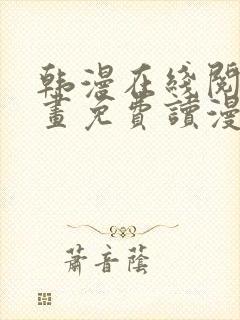 韩漫在綫閱
畫免費讀漫
蕭音蔭